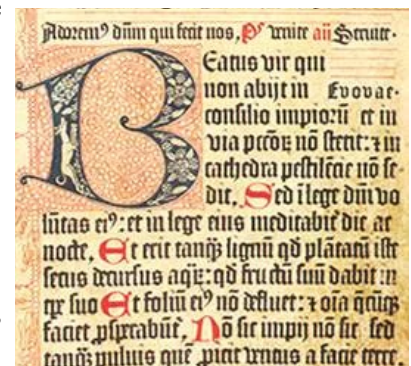 Adorem⁹ dūm qui fecit nos, Ps̄ venite añ Servite.
Beatus vir qui
non abijt in Evovae.
consilio impiorū et in
via pccōꝝ nō stetit: ⁊ in
cathedra pestilēcie nō se-
dit, Sed ī lege dūi vo
lūtas ei⁹: et in lege eius meditabiꝶ die ac
nocte, Et erit tanꝗ̃ lignū qd̄ plātatū iħ
secus decursus aꝗꝝ: qd̄ fructū suū dabit ī
tꝑe suo Et foliū ei⁹ nō defluet: ⁊ oīa ꝗ̄cūꝗꝫ
faciet ꝓsperabūꝶ, Nō sic impij nō sic sed
tanꝗ̃ pulvis quē ꝓicit ventus a facie terre,